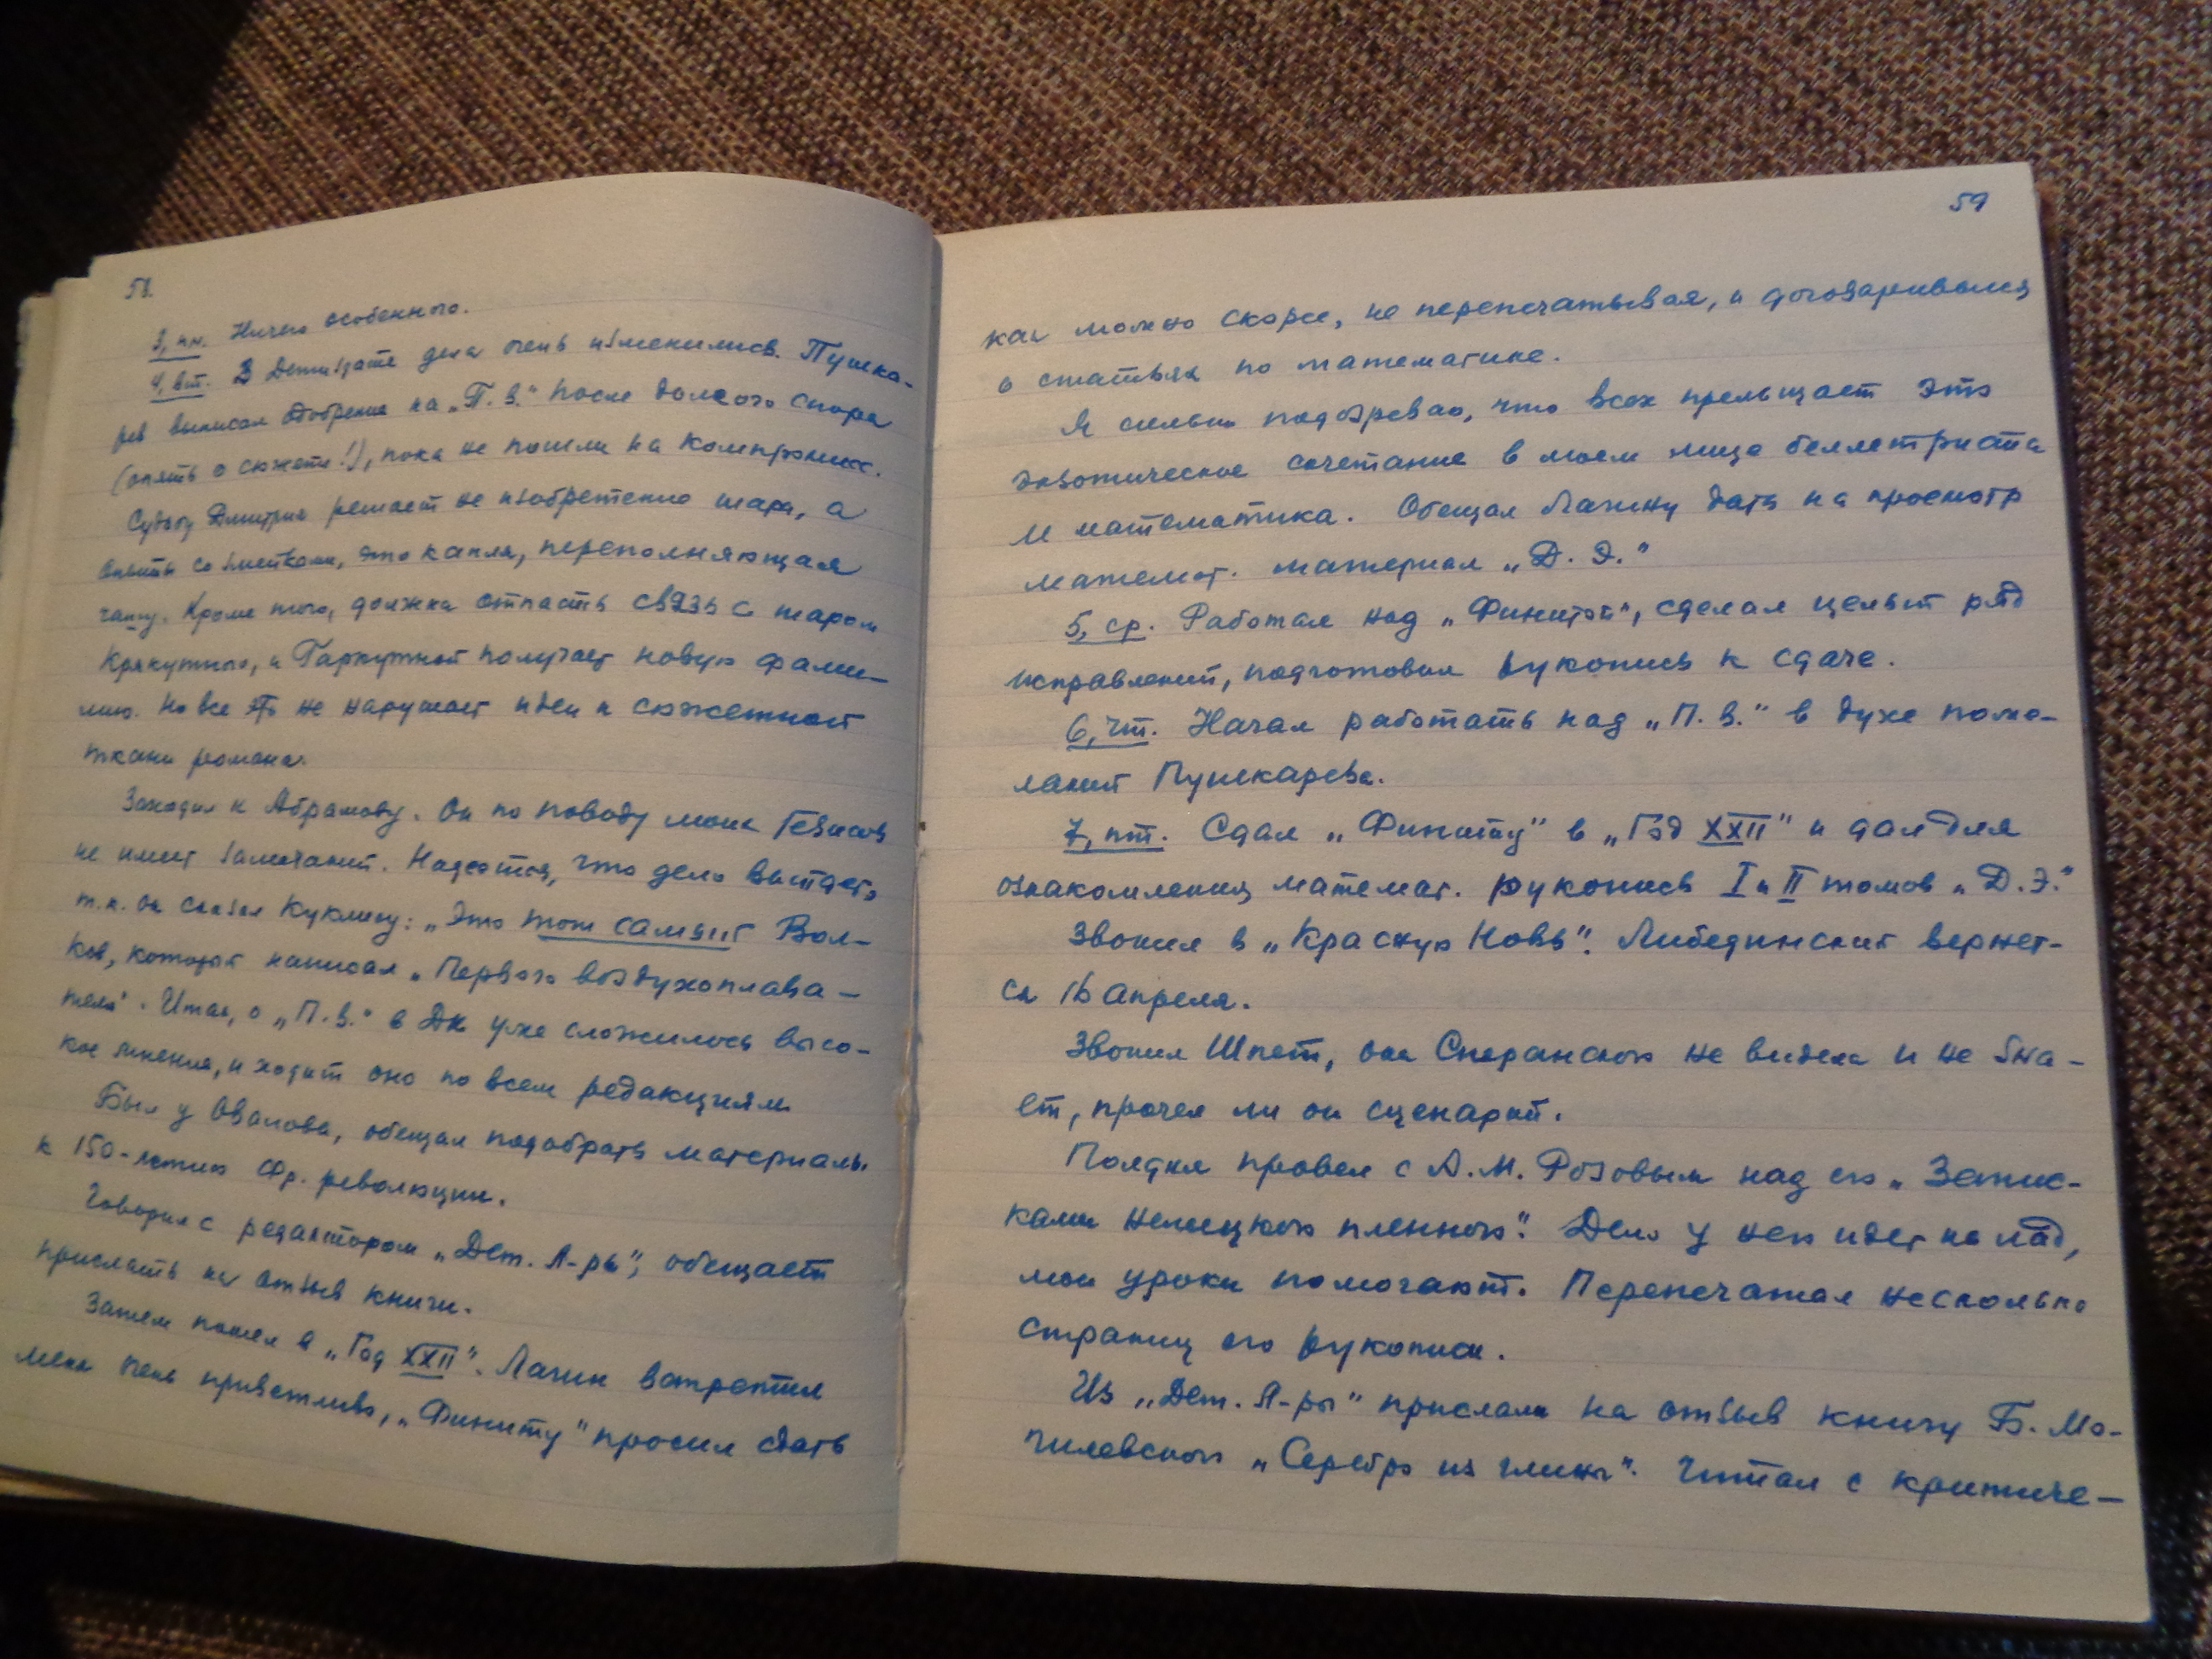 58.
3, пн. Ничего особенного.
4, вт. В Детиздате дела очень изменились. Пушка-
рев выписал одобрение на „П. В." после долгого спора
(опять о сюжете!), пока не пошли на компромисс.
Судьбу Дмитрия решает не изобретение шара, а
опыты со змейками, это капля, переполняющая
чашу. Кроме того, должна отпасть связь с шаром
Крякутного, и Гаркутной получает новую фами-
лию. Но все это не нарушает идеи и сюжетной
ткани романа.
Заходил к Абрамову. Он по поводу моих тезисов
не имеет замечаний. Надеется, что дело выйдет,
т.к. он сказал Куклису: „Это тот самый Вол-
ков, который написал „Первого воздухоплава-
теля". Итак, о „П. В." в ДК уже сложилось высо-
кое мнение, и ходит оно по всем редакциям
Был у Овалова, обещал подобрать материалы
к 150-летию Фр. революции.
Говорил с редактором „Дет. Л-ры", обещает
прислать на отзыв книги.
Затем пошел в „Год XXII". Лагин встретил
меня очень приветливо, „Финиту" просил сдать
59
как можно скорее, не перепечатывая, и договаривался
о статьях по математике.
Я сильно подозреваю, что всех прельщает это
экзотическое сочетание в моем лице беллетриста
и математика. Обещал Лагину дать на просмотр
математ. материал „Д. Э."
5, ср. Работал над „Финитой", сделал целый ряд
исправлений, подготовил рукопись к сдаче.
6, чт. Начал работать над „П. В." в духе поже-
ланий Пушкарева.
7, пт. Сдал „Финиту" в „Год XXII" и дал для
ознакомления математ. рукопись I и II томов „Д. Э."
Звонил в „Красную Новь". Либединский вернет-
ся 16 апреля.
Звонил Шпет, она Сперанского не видела и не зна-
ет, прочел ли он сценарий.
Полдня провел с А. М. Розовым над его „Запис-
ками немецкого пленного". Дело у него идет на лад,
мои уроки помогают. Перепечатал несколько
страниц его рукописи.
Из „Дет. Л-ры" прислали на отзыв книгу Б. Мо-
гилевского „Серебро из глины". Читал с критиче-